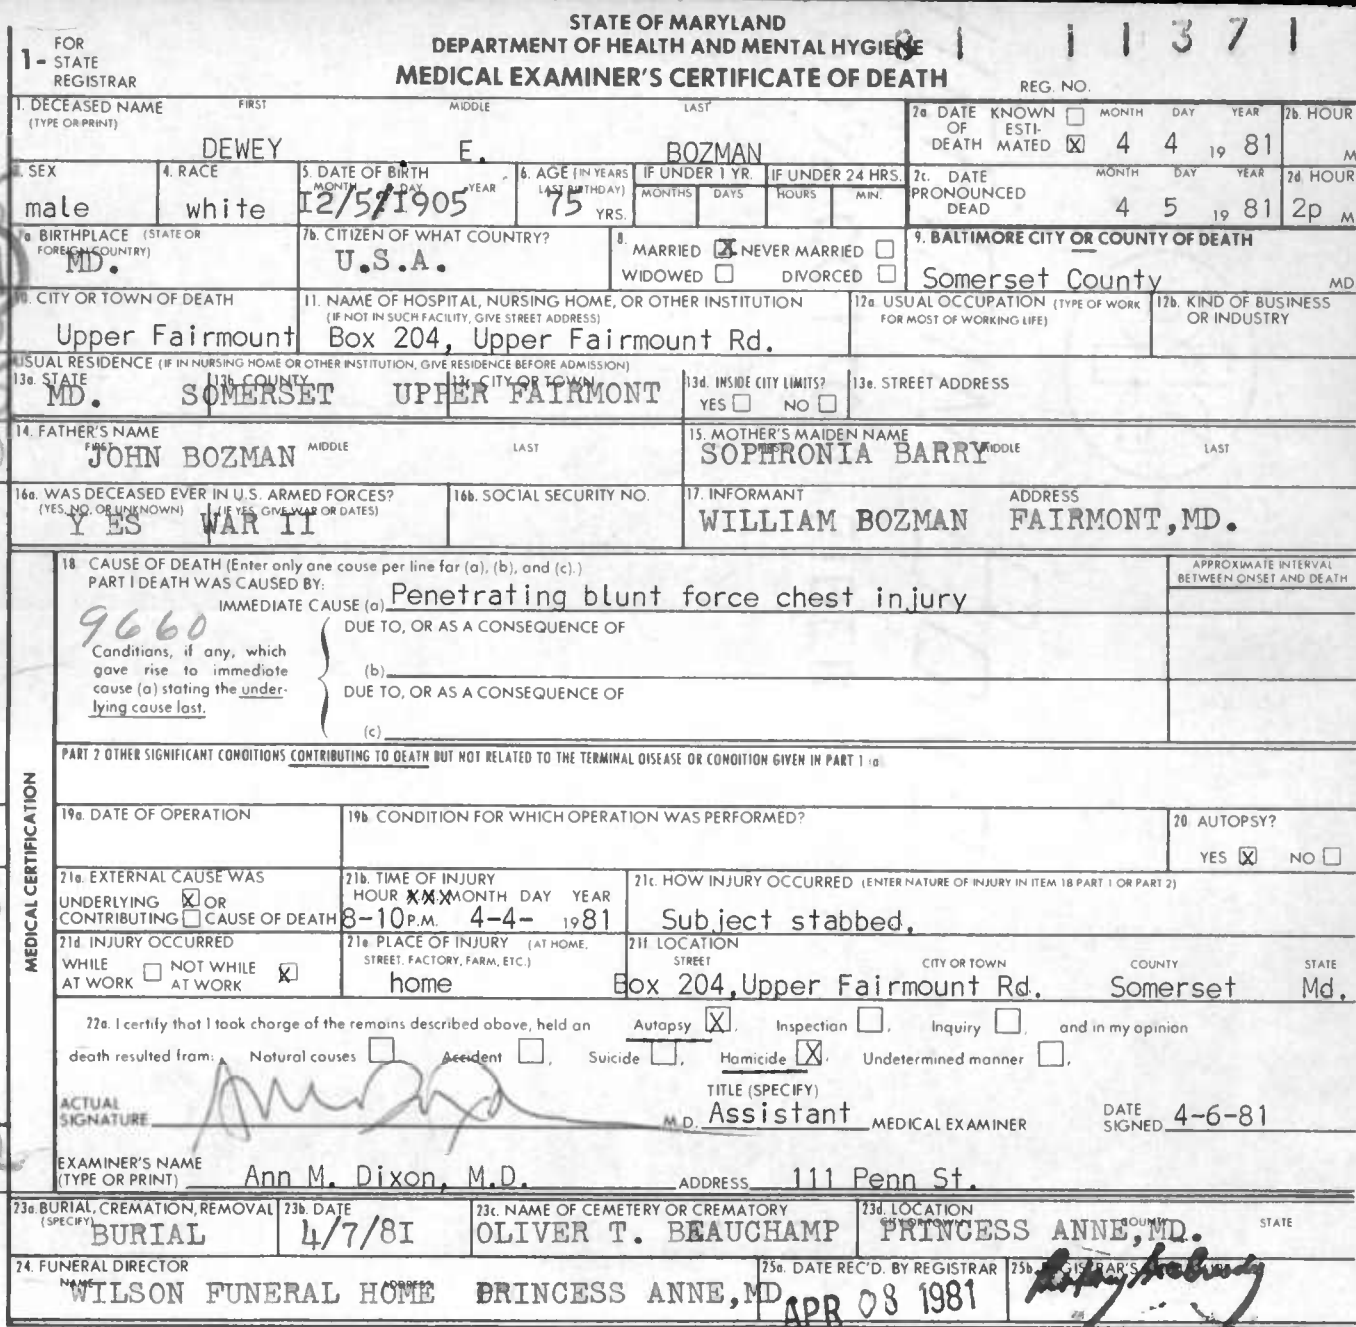 STATE OF MARYLAND
DEPARTMENT OF HEALTH AND MENTAL HYGIENE
MEDICAL EXAMINER'S CERTIFICATE OF DEATH
1- FOR STATE REGISTRAR
81 11371
REG. NO.
1. DECEASED NAME (TYPE OR PRINT) FIRST MIDDLE LAST
DEWEY E. BOZMAN
2a DATE OF DEATH KNOWN ☐ ESTIMATED ☒ MONTH DAY YEAR 4 4 19 81
2b. HOUR M
3. SEX male
4. RACE white
5. DATE OF BIRTH MONTH DAY YEAR I2/5/I905
6. AGE (IN YEARS LAST BIRTHDAY) 75 YRS.
IF UNDER 1 YR. MONTHS DAYS
IF UNDER 24 HRS. HOURS MIN.
2c. DATE PRONOUNCED DEAD MONTH DAY YEAR 4 5 19 81
2d HOUR 2p M
7a BIRTHPLACE (STATE OR FOREIGN COUNTRY) MD.
7b. CITIZEN OF WHAT COUNTRY? U.S.A.
8. MARRIED ☒ NEVER MARRIED ☐
WIDOWED ☐ DIVORCED ☐
9. BALTIMORE CITY OR COUNTY OF DEATH
Somerset County MD
10. CITY OR TOWN OF DEATH
Upper Fairmount
11. NAME OF HOSPITAL, NURSING HOME, OR OTHER INSTITUTION
(IF NOT IN SUCH FACILITY, GIVE STREET ADDRESS)
Box 204, Upper Fairmount Rd.
12a. USUAL OCCUPATION (TYPE OF WORK FOR MOST OF WORKING LIFE)
12b. KIND OF BUSINESS OR INDUSTRY
USUAL RESIDENCE (IF IN NURSING HOME OR OTHER INSTITUTION, GIVE RESIDENCE BEFORE ADMISSION)
13a. STATE 13b. COUNTY 13c. CITY OR TOWN
MD. SOMERSET UPPER FAIRMONT
13d. INSIDE CITY LIMITS? YES ☐ NO ☐
13e. STREET ADDRESS
14. FATHER'S NAME FIRST MIDDLE LAST
JOHN BOZMAN
15. MOTHER'S MAIDEN NAME MIDDLE LAST
SOPHRONIA BARRY
16a. WAS DECEASED EVER IN U.S. ARMED FORCES?
(YES, NO, OR UNKNOWN) (IF YES, GIVE WAR OR DATES)
Y ES WAR II
16b. SOCIAL SECURITY NO.
17. INFORMANT ADDRESS
WILLIAM BOZMAN FAIRMONT,MD.
MEDICAL CERTIFICATION
18 CAUSE OF DEATH (Enter only one cause per line for (a), (b), and (c).)
PART I DEATH WAS CAUSED BY:
IMMEDIATE CAUSE (a) Penetrating blunt force chest injury
APPROXIMATE INTERVAL BETWEEN ONSET AND DEATH
9660
DUE TO, OR AS A CONSEQUENCE OF
Conditions, if any, which gave rise to immediate cause (a) stating the underlying cause last.
(b)
DUE TO, OR AS A CONSEQUENCE OF
(c)
PART 2 OTHER SIGNIFICANT CONDITIONS CONTRIBUTING TO DEATH BUT NOT RELATED TO THE TERMINAL DISEASE OR CONDITION GIVEN IN PART 1 (a
19a. DATE OF OPERATION
19b CONDITION FOR WHICH OPERATION WAS PERFORMED?
20 AUTOPSY?
YES ☒ NO ☐
21a. EXTERNAL CAUSE WAS
UNDERLYING ☒ OR
CONTRIBUTING ☐ CAUSE OF DEATH
21b. TIME OF INJURY
HOUR XXX MONTH DAY YEAR
8-10 P.M. 4-4- 1981
21c. HOW INJURY OCCURRED (ENTER NATURE OF INJURY IN ITEM 18 PART 1 OR PART 2)
Subject stabbed.
21d. INJURY OCCURRED
WHILE AT WORK ☐ NOT WHILE AT WORK ☒
21e PLACE OF INJURY (AT HOME, STREET, FACTORY, FARM, ETC.)
home
21f LOCATION STREET CITY OR TOWN COUNTY STATE
Box 204,Upper Fairmount Rd. Somerset Md.
22a. I certify that I took charge of the remains described above, held an Autopsy ☒, Inspection ☐, Inquiry ☐, and in my opinion
death resulted from: Natural causes ☐ Accident ☐, Suicide ☐, Homicide ☒, Undetermined manner ☐,
ACTUAL SIGNATURE M.D.
TITLE (SPECIFY) Assistant MEDICAL EXAMINER
DATE SIGNED 4-6-81
EXAMINER'S NAME (TYPE OR PRINT) Ann M. Dixon, M.D. ADDRESS 111 Penn St.
23a. BURIAL, CREMATION, REMOVAL (SPECIFY) BURIAL
23b. DATE 4/7/8I
23c. NAME OF CEMETERY OR CREMATORY
OLIVER T. BEAUCHAMP
23d. LOCATION CITY OR TOWN COUNTY STATE
PRINCESS ANNE,MD.
24. FUNERAL DIRECTOR NAME ADDRESS
WILSON FUNERAL HOME PRINCESS ANNE,MD
25a. DATE REC'D. BY REGISTRAR
APR 08 1981
25b. REGISTRAR'S